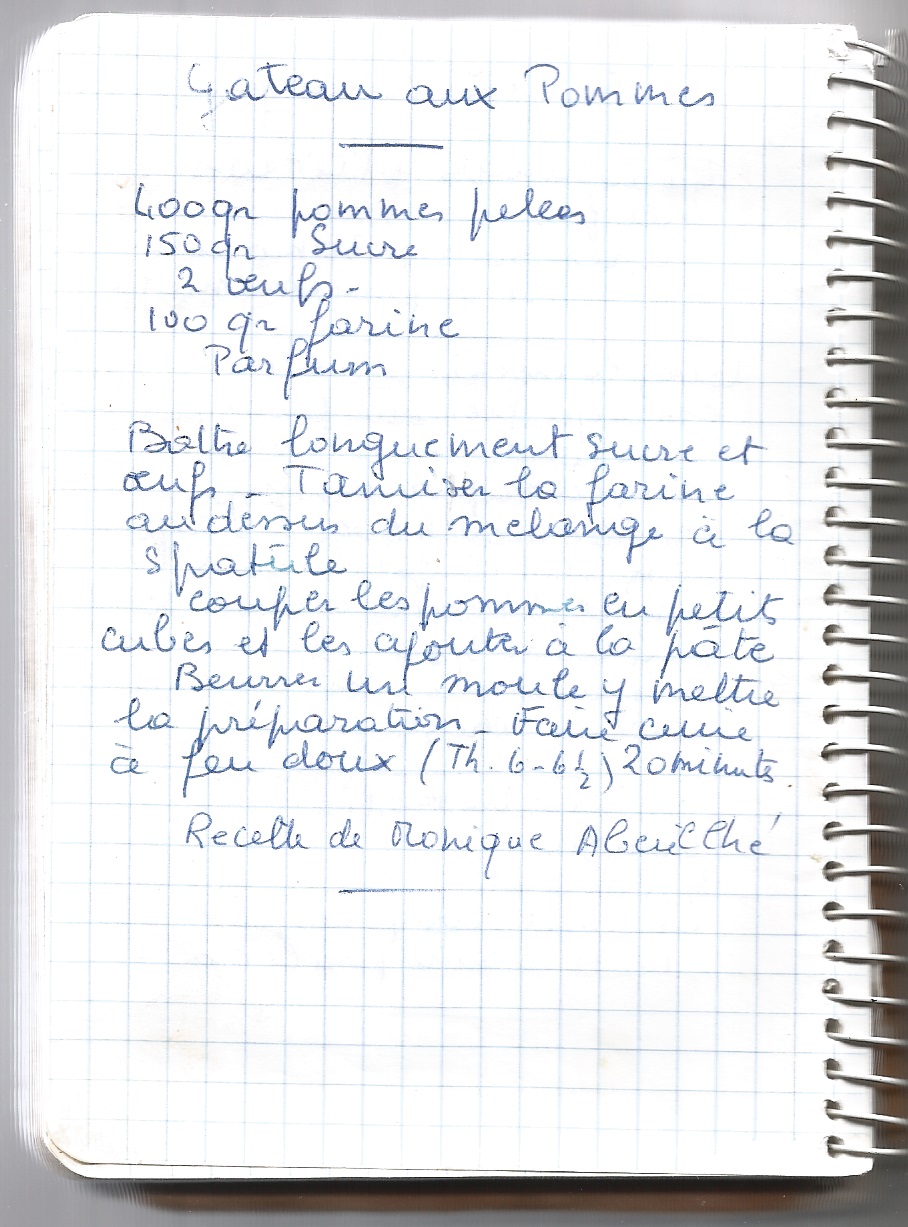 Gateau aux Pommes
400gr pommes pelées
150gr Sucre
2 œufs -
100 gr farine
Parfum
Battre longuement sucre et
œufs - Tamiser la farine
au dessus du mélange à la
spatule
couper les pommes en petits
cubes et les ajouter à la pâte
Beurrer un moule y mettre
la préparation - Faire cuire
à feu doux (Th. 6 - 6 1/2) 20 minutes
Recette de Monique